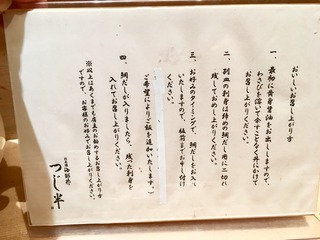 おいしいお召し上がり方
一、最初に黄身醤油をお出ししますので、
わさびを溶いて余すことなく丼にかけて
お召し上がりください。
二、別皿の刺身は締めの鯛だし用に二切れ
残してお召し上がりください。
三、お好みのタイミングで、鯛だしをお入れ
いたしますので、板前までお申し付け
ください。
ご希望によりご飯を追加いたします。)
四、鯛だしが入りましたら、残った刺身を
入れてお召し上がりください。
※以上はあくまでも店主のお勧めするお召し上がり方
ですので、お客様のお好みでお召し上がりください。
日本橋海鮮丼
つじ半